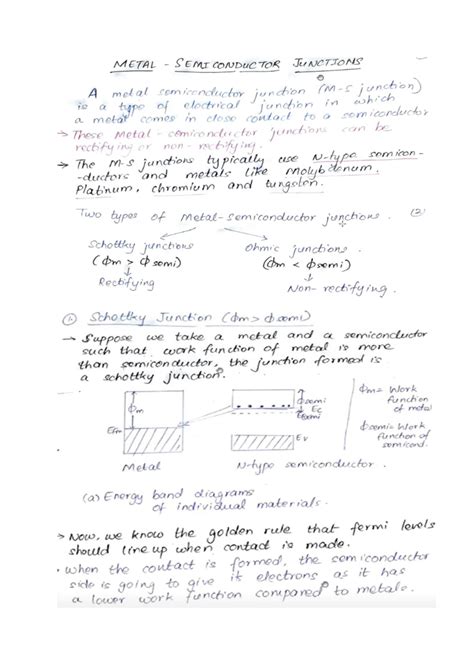 METAL - SEMICONDUCTOR JUNCTIONS
A metal semiconductor junction (M-S junction)
is a type of electrical junction in which
a metal comes in close contact to a semiconductor
→ These Metal - semiconductor junctions can be
rectifying or non-rectifying.
→ The M-S junctions typically use N-type semicon-
-ductors and metals like Molybdenum,
Platinum, chromium and tungston.
Two types of Metal-semiconductor junctions. (2)
Schottky junctions Ohmic junctions.
(Φm > Φsemi) (Φm < Φsemi)
Rectifying Non-rectifying.
Schottky Junction (Φm > Φsemi)
→ Suppose we take a metal and a semiconductor
such that work function of metal is more
than semiconductor, the junction formed is
a schottky junction.
Φm Φsemi Φm = Work
Ec function
Efm Efsemi of metal
Ev Φsemi = Work
function of
semicond.
Metal N-type semiconductor.
(a) Energy band diagrams
of individual materials.
→ Now, we know the golden rule that fermi levels
should line up when contact is made.
• When the contact is formed, the semiconductor
side is going to give its electrons as it has
a lower work function compared to metals.